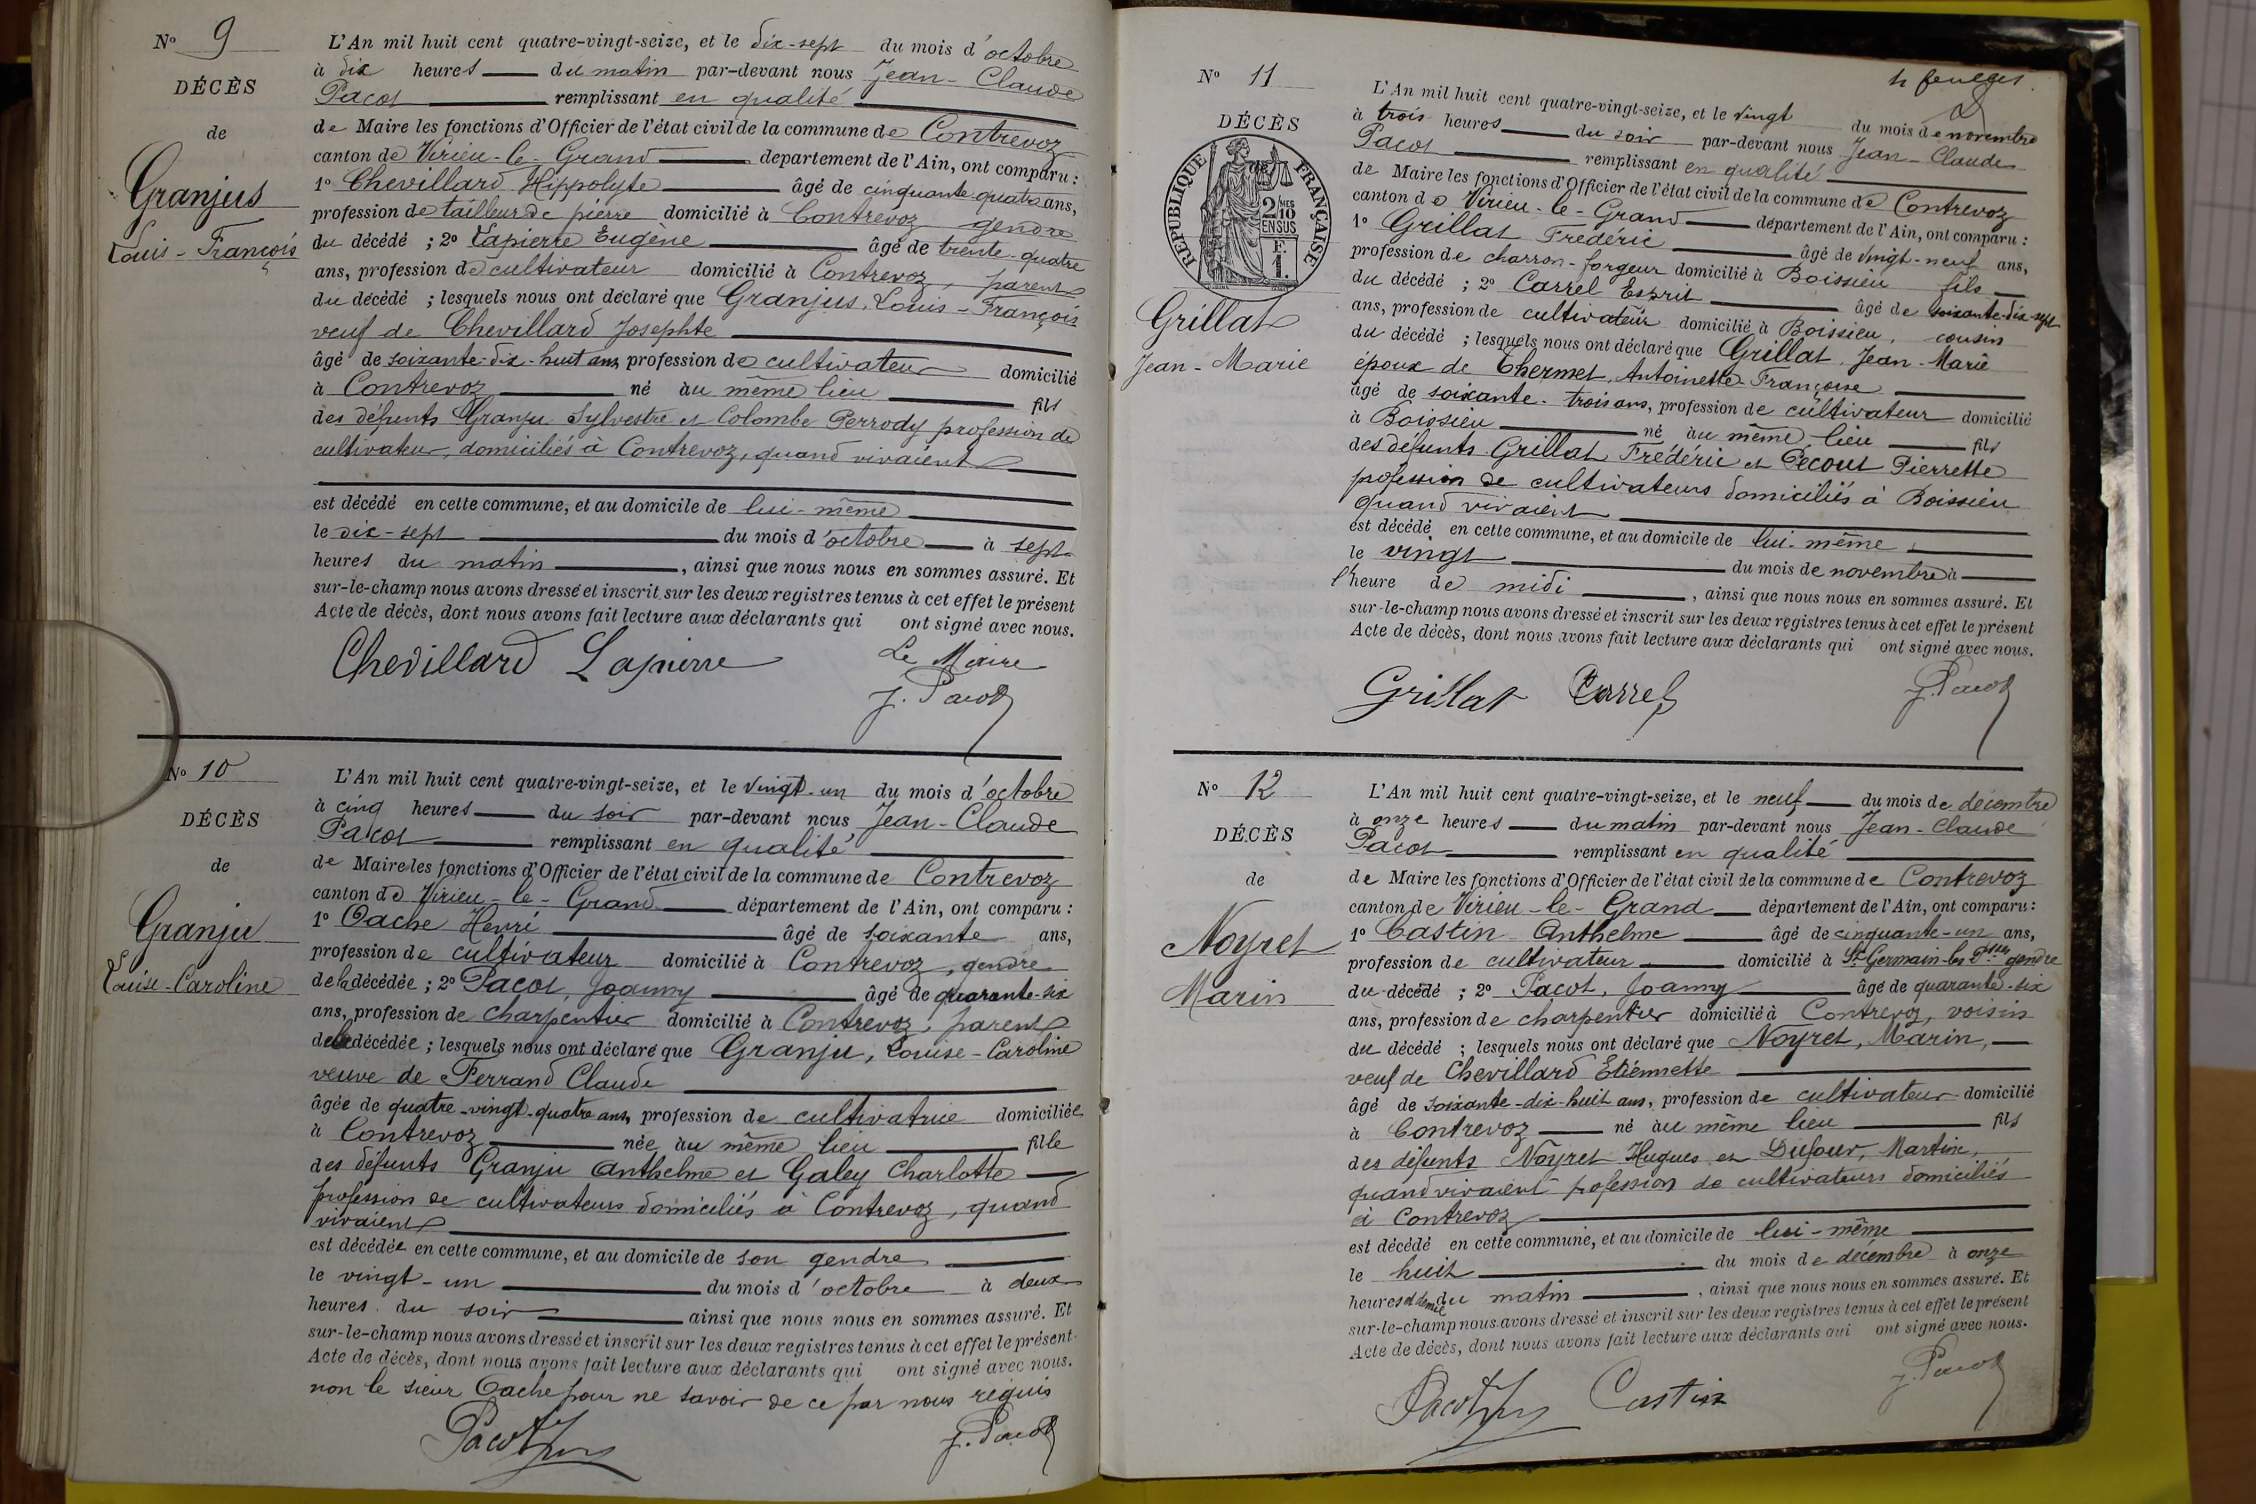 N° 9
DÉCÈS
de
Granjus
Louis-François
L'An mil huit cent quatre-vingt-seize, et le dix-sept du mois d'octobre
à dix heures du matin par-devant nous Jean-Claude
Pacot remplissant en qualité
de Maire les fonctions d'Officier de l'état civil de la commune de Contrevoz
canton de Virieu-le-Grand département de l'Ain, ont comparu :
1° Chevillard Hippolyte âgé de cinquante-quatre ans,
profession de tailleur de pierre domicilié à Contrevoz gendre
du décédé ; 2° Lapierre Eugène âgé de trente-quatre
ans, profession de cultivateur domicilié à Contrevoz, parent
du décédé ; lesquels nous ont déclaré que Granjus, Louis-François
veuf de Chevillard Josephte
âgé de soixante-dix-huit ans, profession de cultivateur domicilié
à Contrevoz né au même lieu fils
des défunts Granju Sylvestre et Colombe Perrody profession de
cultivateur, domiciliés à Contrevoz, quand vivaient
est décédé en cette commune, et au domicile de lui-même
le dix-sept du mois d'octobre à sept
heures du matin, ainsi que nous nous en sommes assuré. Et
sur-le-champ nous avons dressé et inscrit sur les deux registres tenus à cet effet le présent
Acte de décès, dont nous avons fait lecture aux déclarants qui ont signé avec nous.
Chevillard Lapierre Le Maire
J. Pacot
N° 10
DÉCÈS
de
Granju
Louise-Caroline
L'An mil huit cent quatre-vingt-seize, et le vingt-un du mois d'octobre
à cinq heures du soir par-devant nous Jean-Claude
Pacot remplissant en qualité
de Maire les fonctions d'Officier de l'état civil de la commune de Contrevoz
canton de Virieu-le-Grand département de l'Ain, ont comparu :
1° Cache Henri âgé de soixante ans,
profession de cultivateur domicilié à Contrevoz, gendre
de la décédée ; 2° Pacot, Joanny âgé de quarante-six
ans, profession de charpentier domicilié à Contrevoz, parent
de la décédée ; lesquels nous ont déclaré que Granju, Louise-Caroline
veuve de Ferrand Claude
âgée de quatre-vingt-quatre ans, profession de cultivatrice domiciliée
à Contrevoz née au même lieu fille
des défunts Granju Anthelme et Galey Charlotte
profession de cultivateurs domiciliés à Contrevoz, quand
vivaient
est décédée en cette commune, et au domicile de son gendre
le vingt-un du mois d'octobre à deux
heures du soir ainsi que nous nous en sommes assuré. Et
sur-le-champ nous avons dressé et inscrit sur les deux registres tenus à cet effet le présent
Acte de décès, dont nous avons fait lecture aux déclarants qui ont signé avec nous.
non le sieur Cache pour ne savoir de ce par nous requis
Pacot J. Pacot
4 feuilles.
N° 11
DÉCÈS
de
RÉPUBLIQUE FRANÇAISE
2/10 MES
EN SUS
F.
1.
Grillat
Jean-Marie
L'An mil huit cent quatre-vingt-seize, et le vingt du mois de novembre
à trois heures du soir par-devant nous Jean-Claude
Pacot remplissant en qualité
de Maire les fonctions d'Officier de l'état civil de la commune de Contrevoz
canton de Virieu-le-Grand département de l'Ain, ont comparu :
1° Grillat Frédéric âgé de vingt-neuf ans,
profession de charron-forgeur domicilié à Boissieu fils
du décédé ; 2° Carrel Esprit âgé de soixante-dix-sept
ans, profession de cultivateur domicilié à Boissieu, cousin
du décédé ; lesquels nous ont déclaré que Grillat, Jean-Marie
époux de Thermet, Antoinette-Françoise
âgé de soixante-trois ans, profession de cultivateur domicilié
à Boissieu né au même lieu fils
des défunts Grillat Frédéric et Pecout Pierrette
profession de cultivateurs domiciliés à Boissieu
quand vivaient
est décédé en cette commune, et au domicile de lui-même
le vingt du mois de novembre à
l'heure de midi, ainsi que nous nous en sommes assuré. Et
sur-le-champ nous avons dressé et inscrit sur les deux registres tenus à cet effet le présent
Acte de décès, dont nous avons fait lecture aux déclarants qui ont signé avec nous.
Grillat Carrel J. Pacot
N° 12
DÉCÈS
de
Noyret
Marin
L'An mil huit cent quatre-vingt-seize, et le neuf du mois de décembre
à onze heures du matin par-devant nous Jean-Claude
Pacot remplissant en qualité
de Maire les fonctions d'Officier de l'état civil de la commune de Contrevoz
canton de Virieu-le-Grand département de l'Ain, ont comparu :
1° Castin Anthelme âgé de cinquante-un ans,
profession de cultivateur domicilié à St Germain-les-P.sses gendre
du décédé ; 2° Pacot, Joanny âgé de quarante-six
ans, profession de charpentier domicilié à Contrevoz, voisin
du décédé ; lesquels nous ont déclaré que Noyret, Marin,
veuf de Chevillard Etiennette
âgé de soixante-dix-huit ans, profession de cultivateur domicilié
à Contrevoz né au même lieu fils
des défunts Noyret Hugues et Dufour, Martine,
quand vivaient profession de cultivateurs domiciliés
à Contrevoz
est décédé en cette commune, et au domicile de lui-même
le huit du mois de décembre à onze
heures et demie du matin, ainsi que nous nous en sommes assuré. Et
sur-le-champ nous avons dressé et inscrit sur les deux registres tenus à cet effet le présent
Acte de décès, dont nous avons fait lecture aux déclarants qui ont signé avec nous.
Pacot Castin J. Pacot